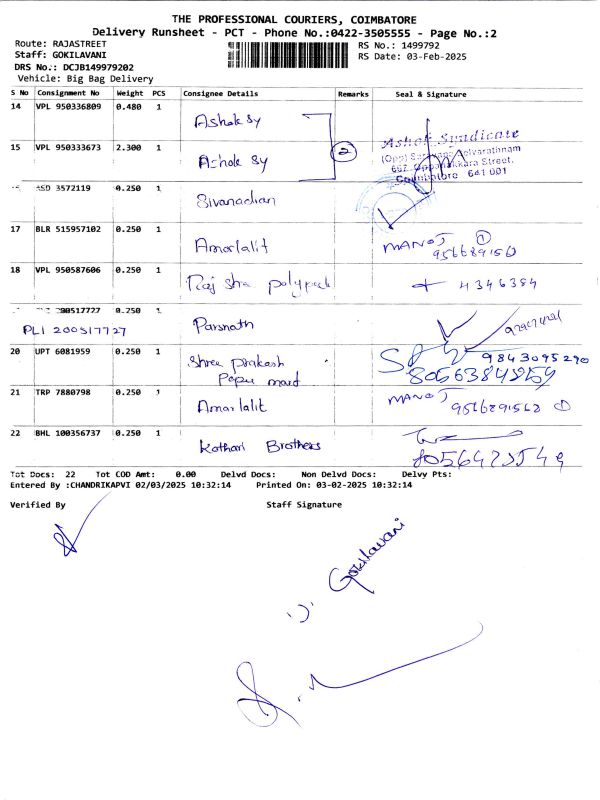 THE PROFESSIONAL COURIERS, COIMBATORE
Delivery Runsheet - PCT - Phone No.:0422-3505555 - Page No.:2
Route: RAJASTREET
RS No.: 1499792
Staff: GOKILAVANI
RS Date: 03-Feb-2025
DRS No.: DCJB149979202
Vehicle: Big Bag Delivery
S No Consignment No Weight PCS Consignee Details Remarks Seal & Signature
14 VPL 950336809 0.480 1 Ashok sy
15 VPL 950333673 2.300 1 Ashok sy 2
Ashok Syndicate
(Opp)
Street,
Coimbatore 641 001
3572119 0.250 1 Sivanadian
17 BLR 515957102 0.250 1 Amarlalit MANOJ 1
18 VPL 950587606 0.250 1 Raj polypack 4346384
200517727 0.250 1 Parsnath
PLI 200517727
20 UPT 6081959 0.250 1 Shree prakash 9843095290
Paper mart
21 TRP 7880798 0.250 1 Amarlalit MANOJ
22 BHL 100356737 0.250 1 Kothari Brothers
Tot Docs: 22 Tot COD Amt: 0.00 Delvd Docs: Non Delvd Docs: Delvy Pts:
Entered By :CHANDRIKAPVI 02/03/2025 10:32:14 Printed On: 03-02-2025 10:32:14
Verified By Staff Signature
Gokilavani